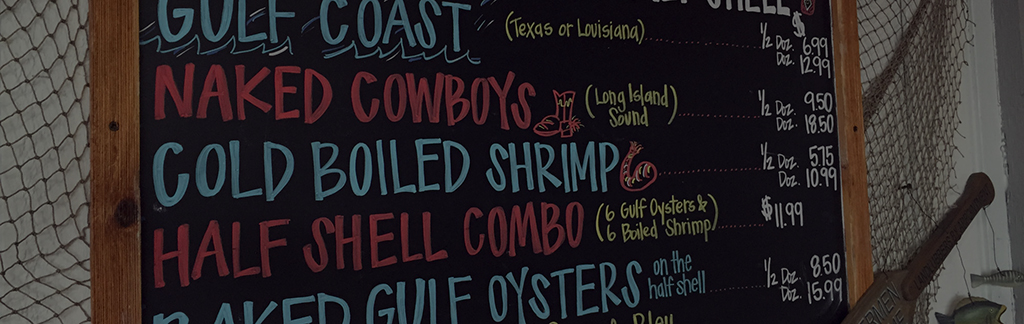 SHELL
GULF COAST (Texas or Louisiana) ½ Doz. $6.99
Doz. 12.99
NAKED COWBOYS (Long Island Sound) ½ Doz. 9.50
Doz. 18.50
COLD BOILED SHRIMP ½ Doz. 5.75
Doz. 10.99
HALF SHELL COMBO (6 Gulf Oysters & 6 Boiled Shrimp) $11.99
BAKED GULF OYSTERS on the half shell ½ Doz. 8.50
Doz. 15.99